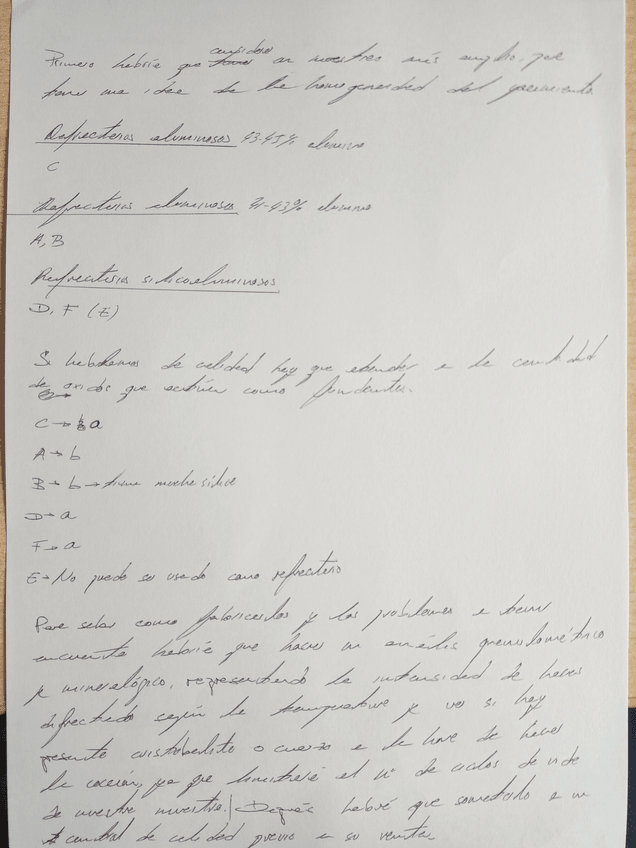 Primero habría que considerar un muestreo más amplio, para
tener una idea de la homogeneidad del yacimiento
Refractarios aluminosos 43-45% alumina
C
Refractarios aluminosos 41-43% alumina
A, B
Refractarios silicoaluminosos
D, F (E)
Si hablamos de calidad hay que atender a la cantidad
de oxidos que actúan como fundentes.
C → a
A → b
B → b → tiene mucha sílice
D → a
F → a
E → No puede ser usado como refractario
Para saber como fabricarlos y los problemas a tener
en cuenta habría que hacer un análisis granulométrico
y mineralógico, representando la intensidad de haces
difractado según la temperatura y ver si hay
presente cristobalita o cuarzo a la hora de hacer
la cocción, ya que limitará el nº de ciclos de vida
de nuestra muestra. Después habrá que someterlo a un
control de calidad previo a su venta.